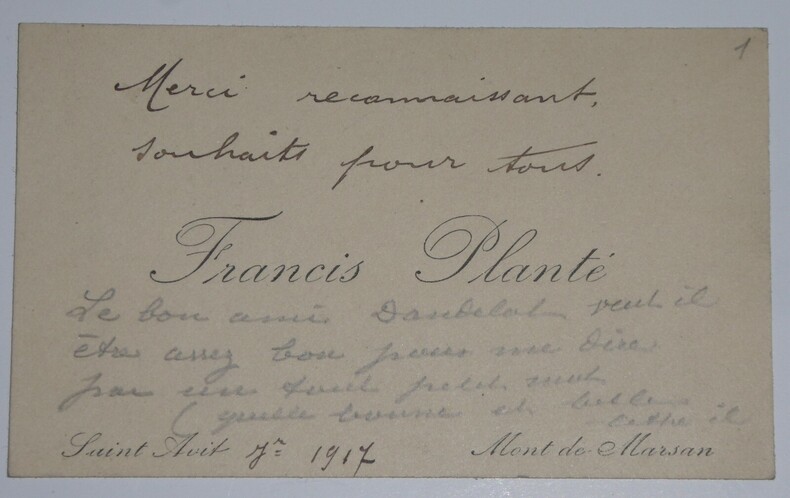 1
Merci reconnaissant,
souhaits pour tous.
Francis Planté
Le bon ami Dandelot veut il
être assez bon pour me dire
par un tout petit mot
(quelle bonne et belle
lettre il
Saint Avit Jr 1917 Mont de Marsan